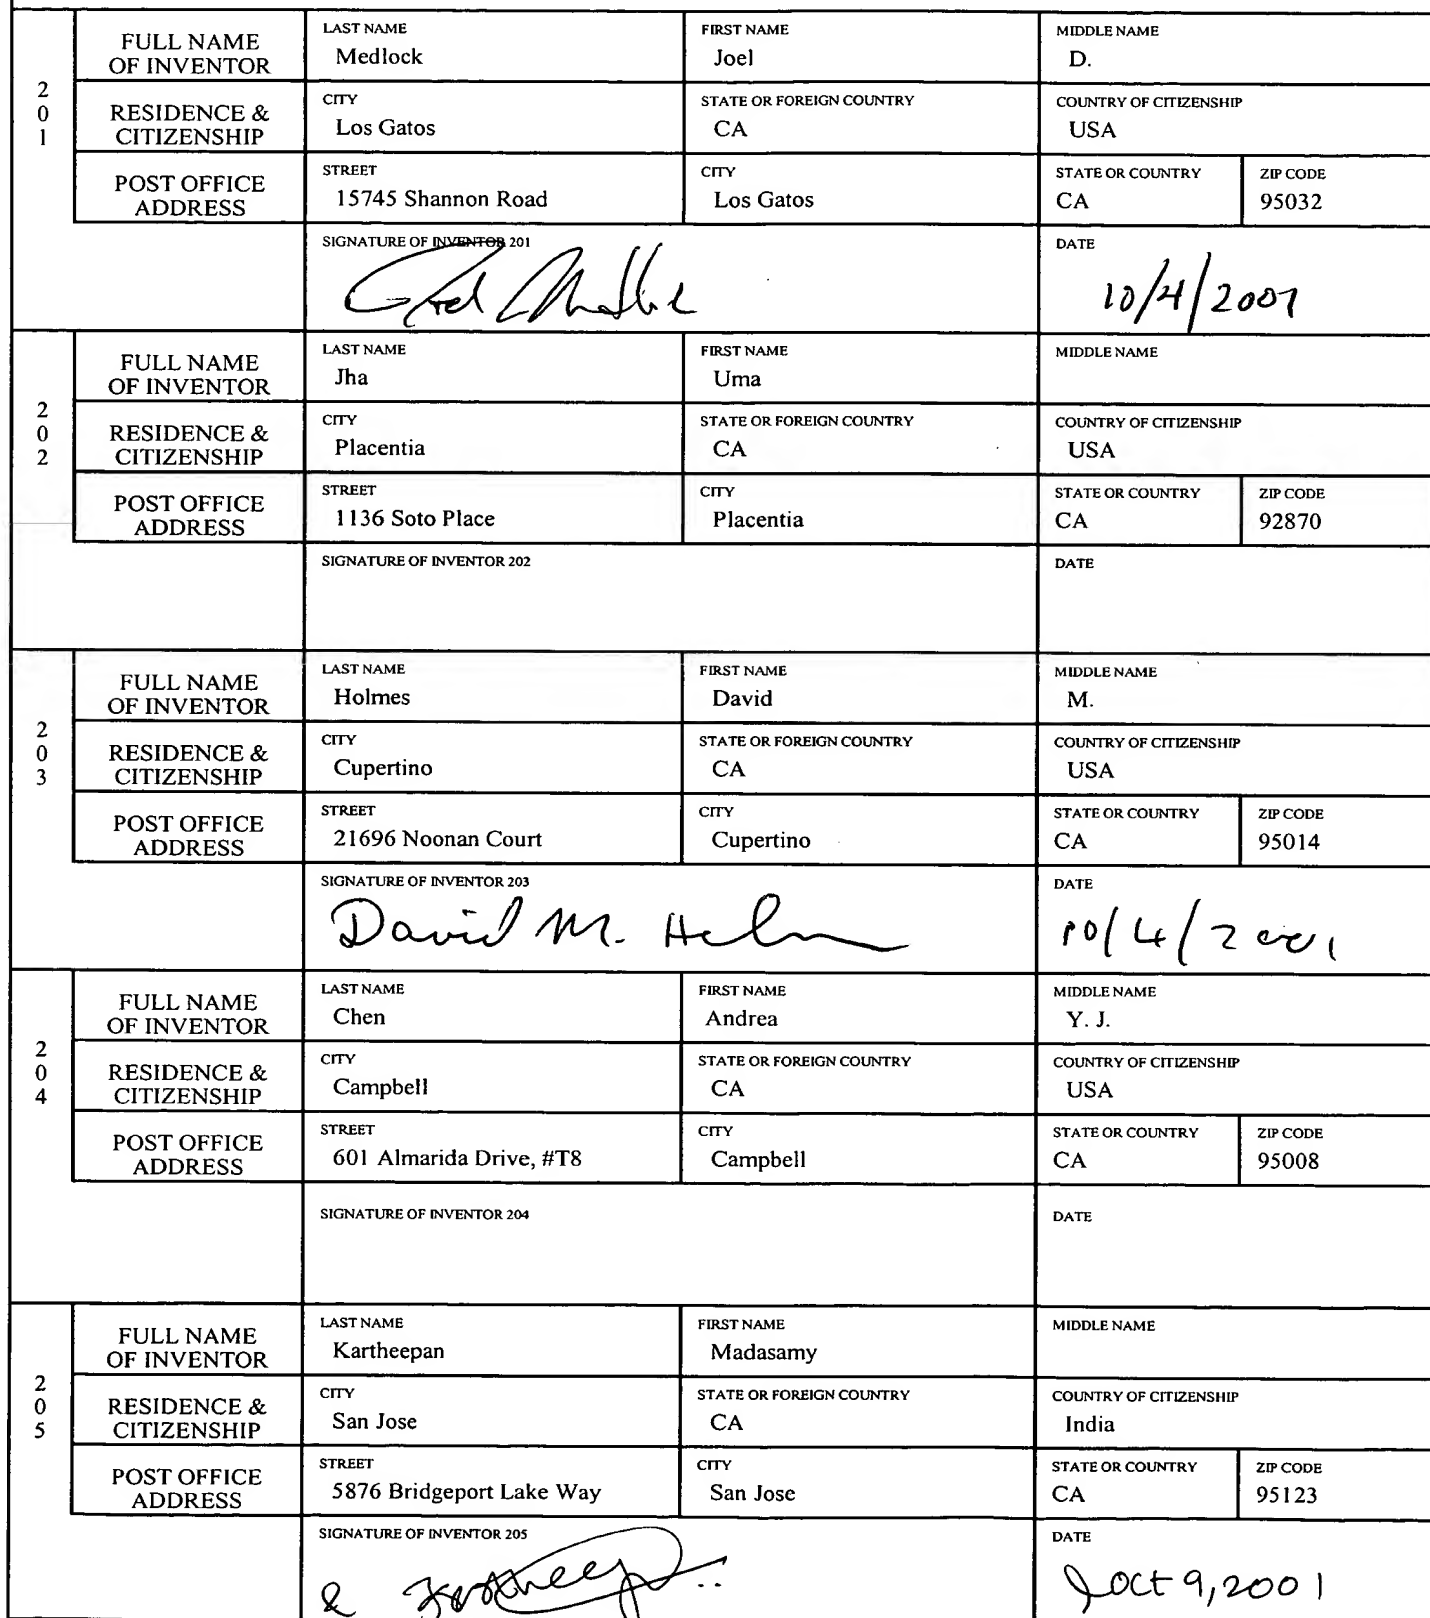 201
FULL NAME OF INVENTOR
LAST NAME Medlock
FIRST NAME Joel
MIDDLE NAME D.
RESIDENCE & CITIZENSHIP
CITY Los Gatos
STATE OR FOREIGN COUNTRY CA
COUNTRY OF CITIZENSHIP USA
POST OFFICE ADDRESS
STREET 15745 Shannon Road
CITY Los Gatos
STATE OR COUNTRY CA
ZIP CODE 95032
SIGNATURE OF INVENTOR 201
DATE 10/4/2001
202
FULL NAME OF INVENTOR
LAST NAME Jha
FIRST NAME Uma
MIDDLE NAME
RESIDENCE & CITIZENSHIP
CITY Placentia
STATE OR FOREIGN COUNTRY CA
COUNTRY OF CITIZENSHIP USA
POST OFFICE ADDRESS
STREET 1136 Soto Place
CITY Placentia
STATE OR COUNTRY CA
ZIP CODE 92870
SIGNATURE OF INVENTOR 202
DATE
203
FULL NAME OF INVENTOR
LAST NAME Holmes
FIRST NAME David
MIDDLE NAME M.
RESIDENCE & CITIZENSHIP
CITY Cupertino
STATE OR FOREIGN COUNTRY CA
COUNTRY OF CITIZENSHIP USA
POST OFFICE ADDRESS
STREET 21696 Noonan Court
CITY Cupertino
STATE OR COUNTRY CA
ZIP CODE 95014
SIGNATURE OF INVENTOR 203 David M.
DATE 10/4/2001
204
FULL NAME OF INVENTOR
LAST NAME Chen
FIRST NAME Andrea
MIDDLE NAME Y. J.
RESIDENCE & CITIZENSHIP
CITY Campbell
STATE OR FOREIGN COUNTRY CA
COUNTRY OF CITIZENSHIP USA
POST OFFICE ADDRESS
STREET 601 Almarida Drive, #T8
CITY Campbell
STATE OR COUNTRY CA
ZIP CODE 95008
SIGNATURE OF INVENTOR 204
DATE
205
FULL NAME OF INVENTOR
LAST NAME Kartheepan
FIRST NAME Madasamy
MIDDLE NAME
RESIDENCE & CITIZENSHIP
CITY San Jose
STATE OR FOREIGN COUNTRY CA
COUNTRY OF CITIZENSHIP India
POST OFFICE ADDRESS
STREET 5876 Bridgeport Lake Way
CITY San Jose
STATE OR COUNTRY CA
ZIP CODE 95123
SIGNATURE OF INVENTOR 205
DATE Oct 9, 2001